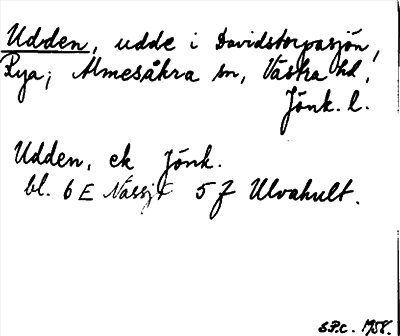 Udden, udde i Davidstorpasjön,
Rya; Almesåkra sn, Västra hd,
Jönk. l.
Udden, ek Jönk.
bl. 6 E Nässjö 5 f Ulvahult.
S.P.c. 1958.